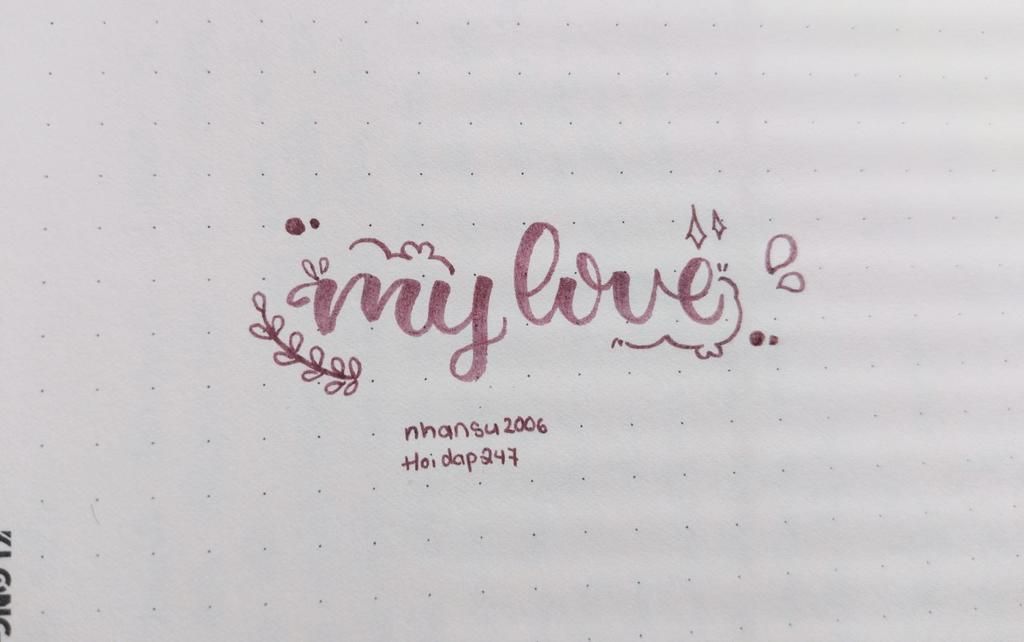 my love
nhansu2006
Hoidap247